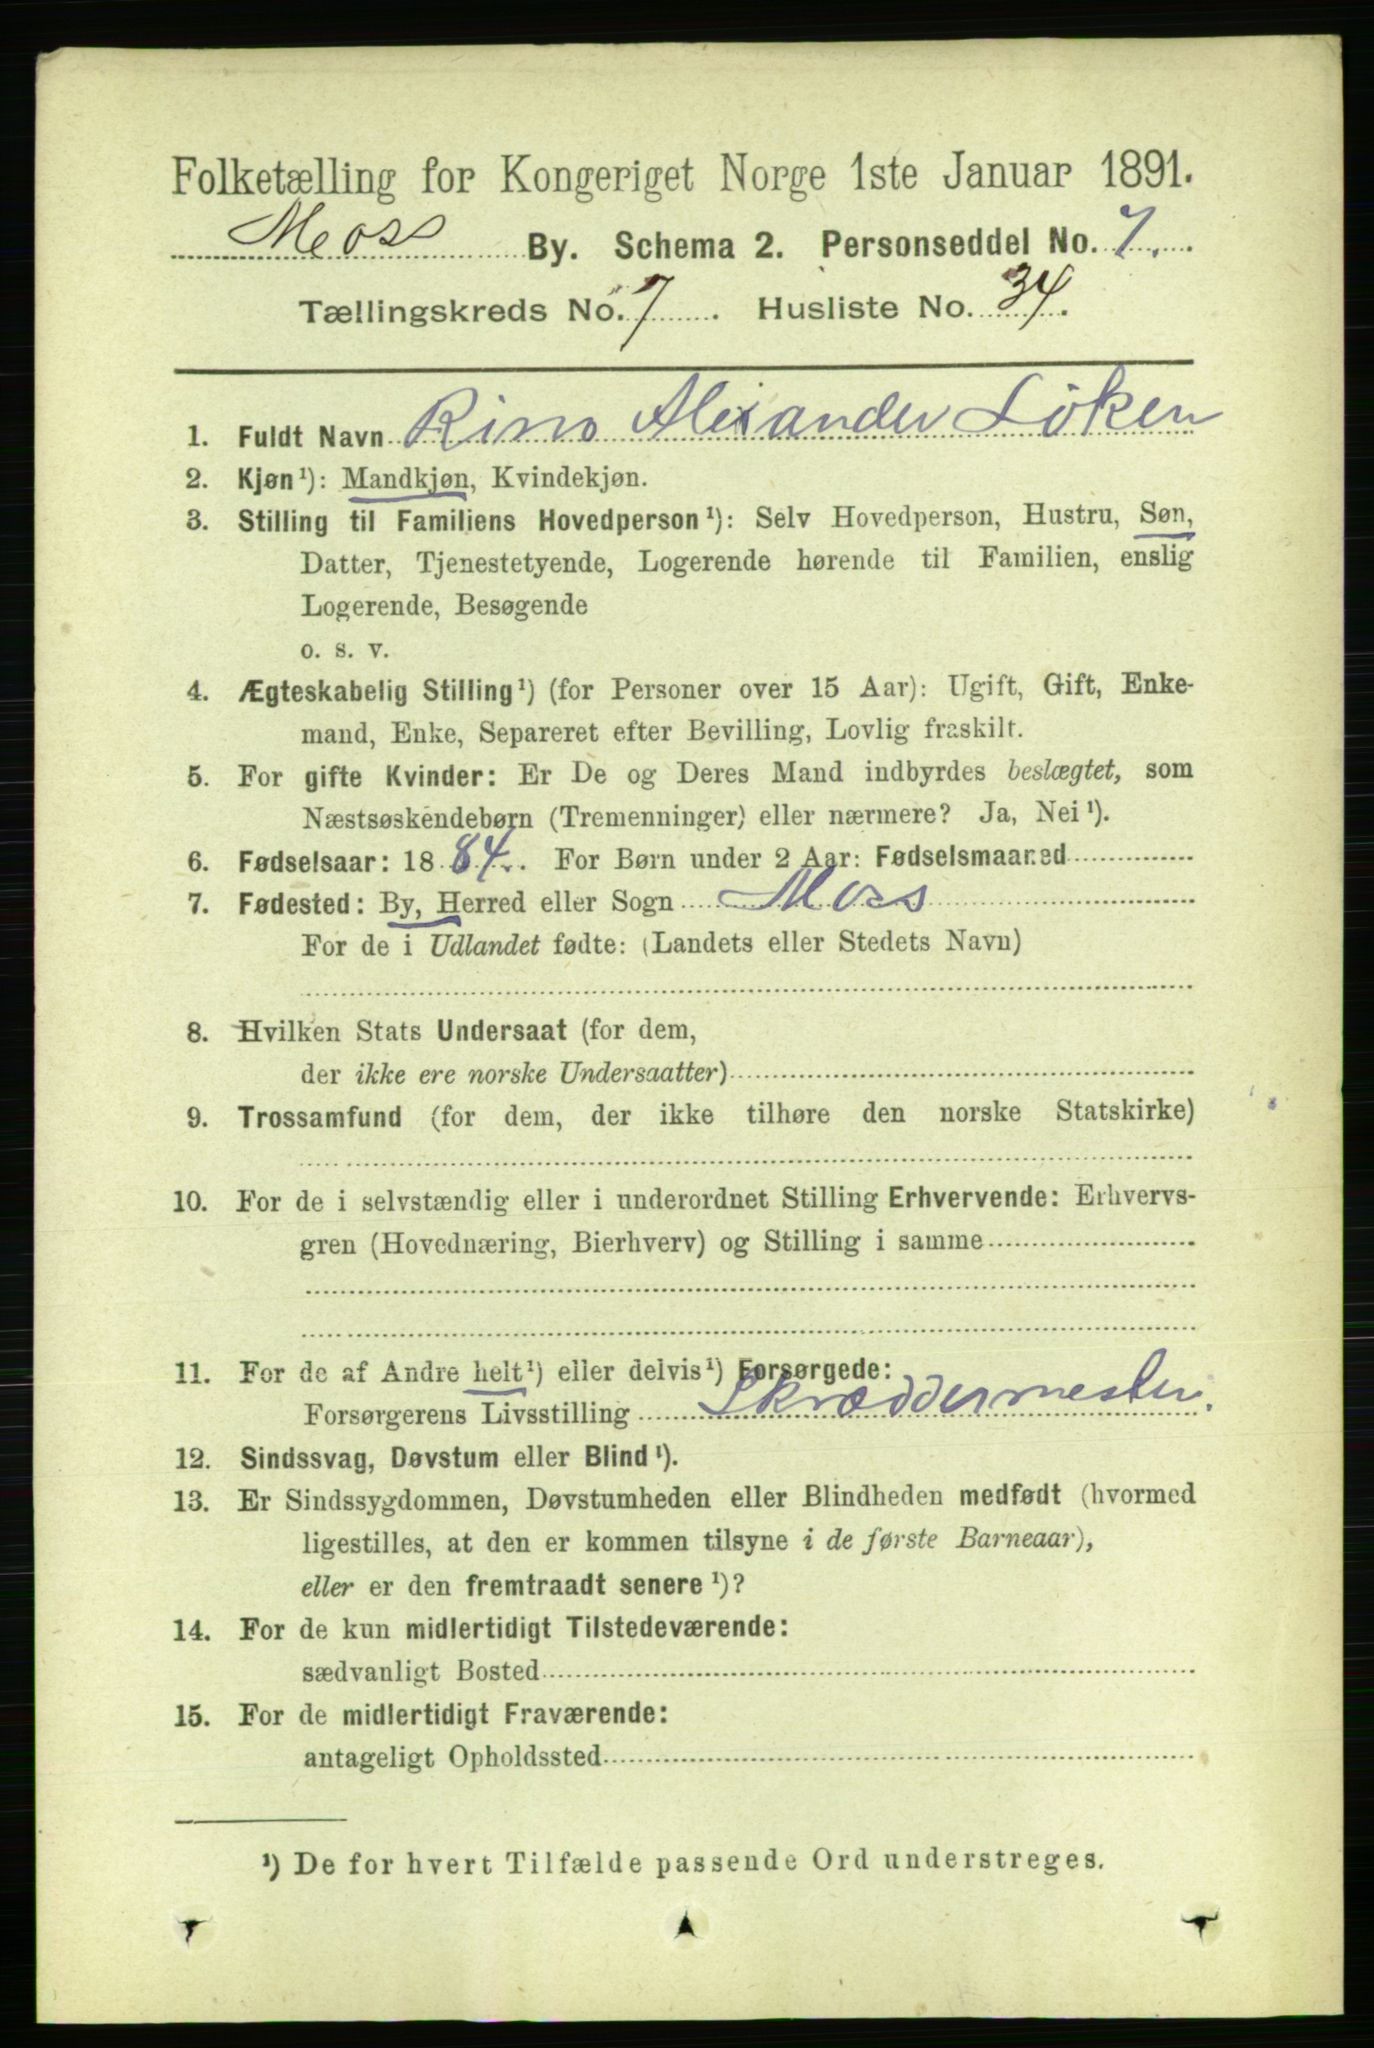 Folketælling for Kongeriget Norge 1ste Januar 1891.
Moss By. Schema 2. Personseddel No. 7.
Tællingskreds No. 7. Husliste No. 34.
1. Fuldt Navn Rino Alexander Löken
2. Kjøn¹): Mandkjøn, Kvindekjøn.
3. Stilling til Familiens Hovedperson¹): Selv Hovedperson, Hustru, Søn,
Datter, Tjenestetyende, Logerende hørende til Familien, enslig
Logerende, Besøgende
o. s. v.
4. Ægteskabelig Stilling¹) (for Personer over 15 Aar): Ugift, Gift, Enke-
mand, Enke, Separeret efter Bevilling, Lovlig fraskilt.
5. For gifte Kvinder: Er De og Deres Mand indbyrdes beslægtet, som
Næstsøskendebørn (Tremenninger) eller nærmere? Ja, Nei¹).
6. Fødselsaar: 1884. For Børn under 2 Aar: Fødselsmaaned
7. Fødested: By, Herred eller Sogn Moss
For de i Udlandet fødte: (Landets eller Stedets Navn)
8. Hvilken Stats Undersaat (for dem,
der ikke ere norske Undersaatter)
9. Trossamfund (for dem, der ikke tilhøre den norske Statskirke)
10. For de i selvstændig eller i underordnet Stilling Erhvervende: Erhvervs-
gren (Hovednæring, Bierhverv) og Stilling i samme
11. For de af Andre helt¹) eller delvis¹) Forsørgede:
Forsørgerens Livsstilling Skræddermester.
12. Sindssvag, Døvstum eller Blind¹).
13. Er Sindssygdommen, Døvstumheden eller Blindheden medfødt (hvormed
ligestilles, at den er kommen tilsyne i de første Barneaar),
eller er den fremtraadt senere¹)?
14. For de kun midlertidigt Tilstedeværende:
sædvanligt Bosted
15. For de midlertidigt Fraværende:
antageligt Opholdssted
¹) De for hvert Tilfælde passende Ord understreges.